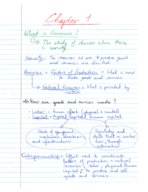 Chapter 1
What is Economics?
↳ The study of choices when there is scarcity
Scarcity: The resources we use to provide goods and services are limited
Resources = Factors of Production = What is used to make goods and services
↳ Natural Resources = What is provided by nature
How are goods and services made?
↳ Labor = human effort (physical + mental)
↳ Capital = Physical Capital / Human Capital
Stock of equipment, machinery, structures, and infrastructure
Knowledge and skills that a worker has through education
Entrepreneurship = What used to coordinate factors of production = natural resources, labor, physical human capital to produce and sell goods and services